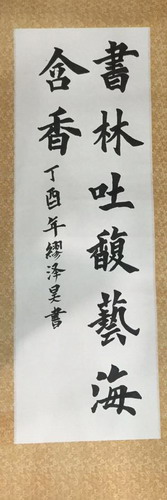 書林吐馥藝海
含香
丁酉年繆泽昊書